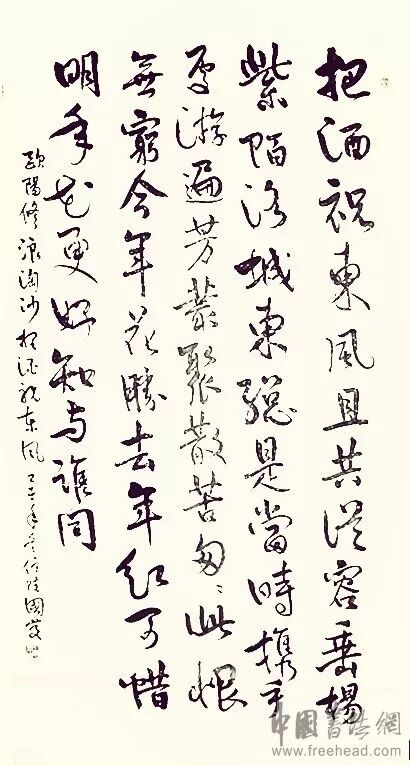 把酒祝東風且共從容垂楊
紫陌洛城東總是當時攜手
處游遍芳叢聚散苦匆〻此恨
無窮今年花勝去年紅可惜
明年花更好知与誰同
歐陽修浪淘沙把酒祝東風
中國書法網
www.freehead.com